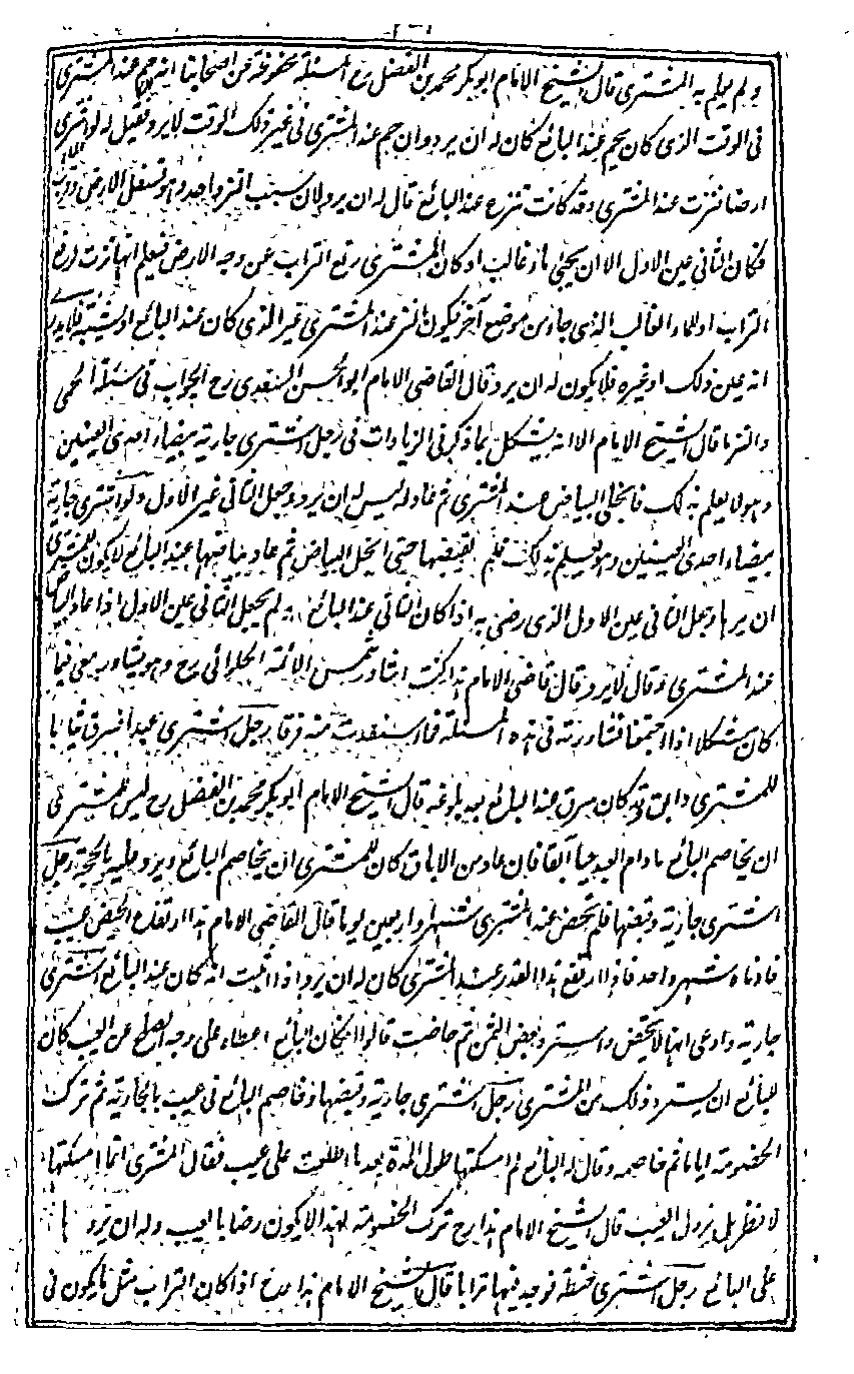 ولم يعلم به المشترى قال الشيخ الامام ابو بكر محمد بن الفضل رح المسئلة محفوظة عن اصحابنا انه ان حم عند المشترى
فى الوقت الذى كان يحم عند البائع كان له ان يرد وان حم عند المشترى فى غير ذلك الوقت لا يرد فقيل له لو اشترى
ارضا فنزت عند المشترى وقد كانت تنز عند البائع قال له ان يرد لان سبب النز واحد وهو تسفل الارض وقرب الماء
فكان الثانى عين الاول الا ان يجئ ماء غالب او كان المشترى رفع التراب عن وجه الارض فيعلم انها نزت لرفع
التراب او للماء الغالب الذى جاء من موضع آخر فيكون النز عند المشترى غير الذى كان عند البائع او يشتبه فلا يدرى
انه عين ذلك او غيره فلا يكون له ان يرد وقال القاضى الامام ابو الحسن السغدى رح الجواب فى مسئلة الحمى
والنز ما قال الشيخ الامام الا انه يشكل بما ذكر فى الزيادات فى رجل اشترى جارية بيضاء احدى العينين
وهو لا يعلم بذلك فانجلى البياض عند المشترى ثم عاد له ليس له ان يرد وجعل الثانى غير الاول ولو اشترى جارية
بيضاء احدى العينين وهو يعلم بذلك فلم يقبضها حتى انجلى البياض ثم عاد بياضها عند البائع لا يكون للمشترى
ان يردها وجعل الثانى عين الاول الذى رضى به اذا كان الثانى عند البائع ولم يجعل الثانى عين الاول اذا عاد البياض
عند المشترى وقال لا يرد وقال قاضى الامام هذا كنت اشاور شمس الائمة الحلوائى رح وهو يشاور معى فيما
كان مشكلا اذا اجتمعنا فشاورته فى هذه المسئلة فما استفدت منه فرقا رجل اشترى عبدا فسرق ثيابا
للمشترى وابق وقد كان سرق عند البائع بعد بلوغه قال الشيخ الامام ابو بكر محمد بن الفضل رح ليس للمشترى
ان يخاصم البائع ما دام العبد حيا آبقا فان عاد من الاباق كان للمشترى ان يخاصم البائع ويرد عليه بالحجة رجل
اشترى جارية وقبضها فلم تحض عند المشترى شهرا واربعين يوما قال القاضى الامام هذا ارتفاع الحيض عيب
فادناه شهر واحد فاذا ارتفع هذا القدر عند المشترى كان له ان يرد اذا اثبت انه كان عند البائع اشترى
جارية وادعى انها لا تحيض واسترد بعض الثمن ثم حاضت قالوا ان كان البائع اعطاه على وجه الصلح عن العيب كان
للبائع ان يسترد ذلك من المشترى رجل اشترى جارية وقبضها وخاصم البائع فى عيب بالجارية ثم ترك
الخصومة اياما ثم خاصمه وقال له البائع لم امسكتها طول المدة بعد ما اطلعت على عيب فقال المشترى انما امسكتها
لا نظر هل يزول العيب قال الشيخ الامام هذا رح ترك الخصومة لهذا لا يكون رضا بالعيب وله ان يرد
على البائع رجل اشترى حنطة فوجد فيها ترابا قال الشيخ الامام هذا رح اذا كان التراب مثل ما يكون فى